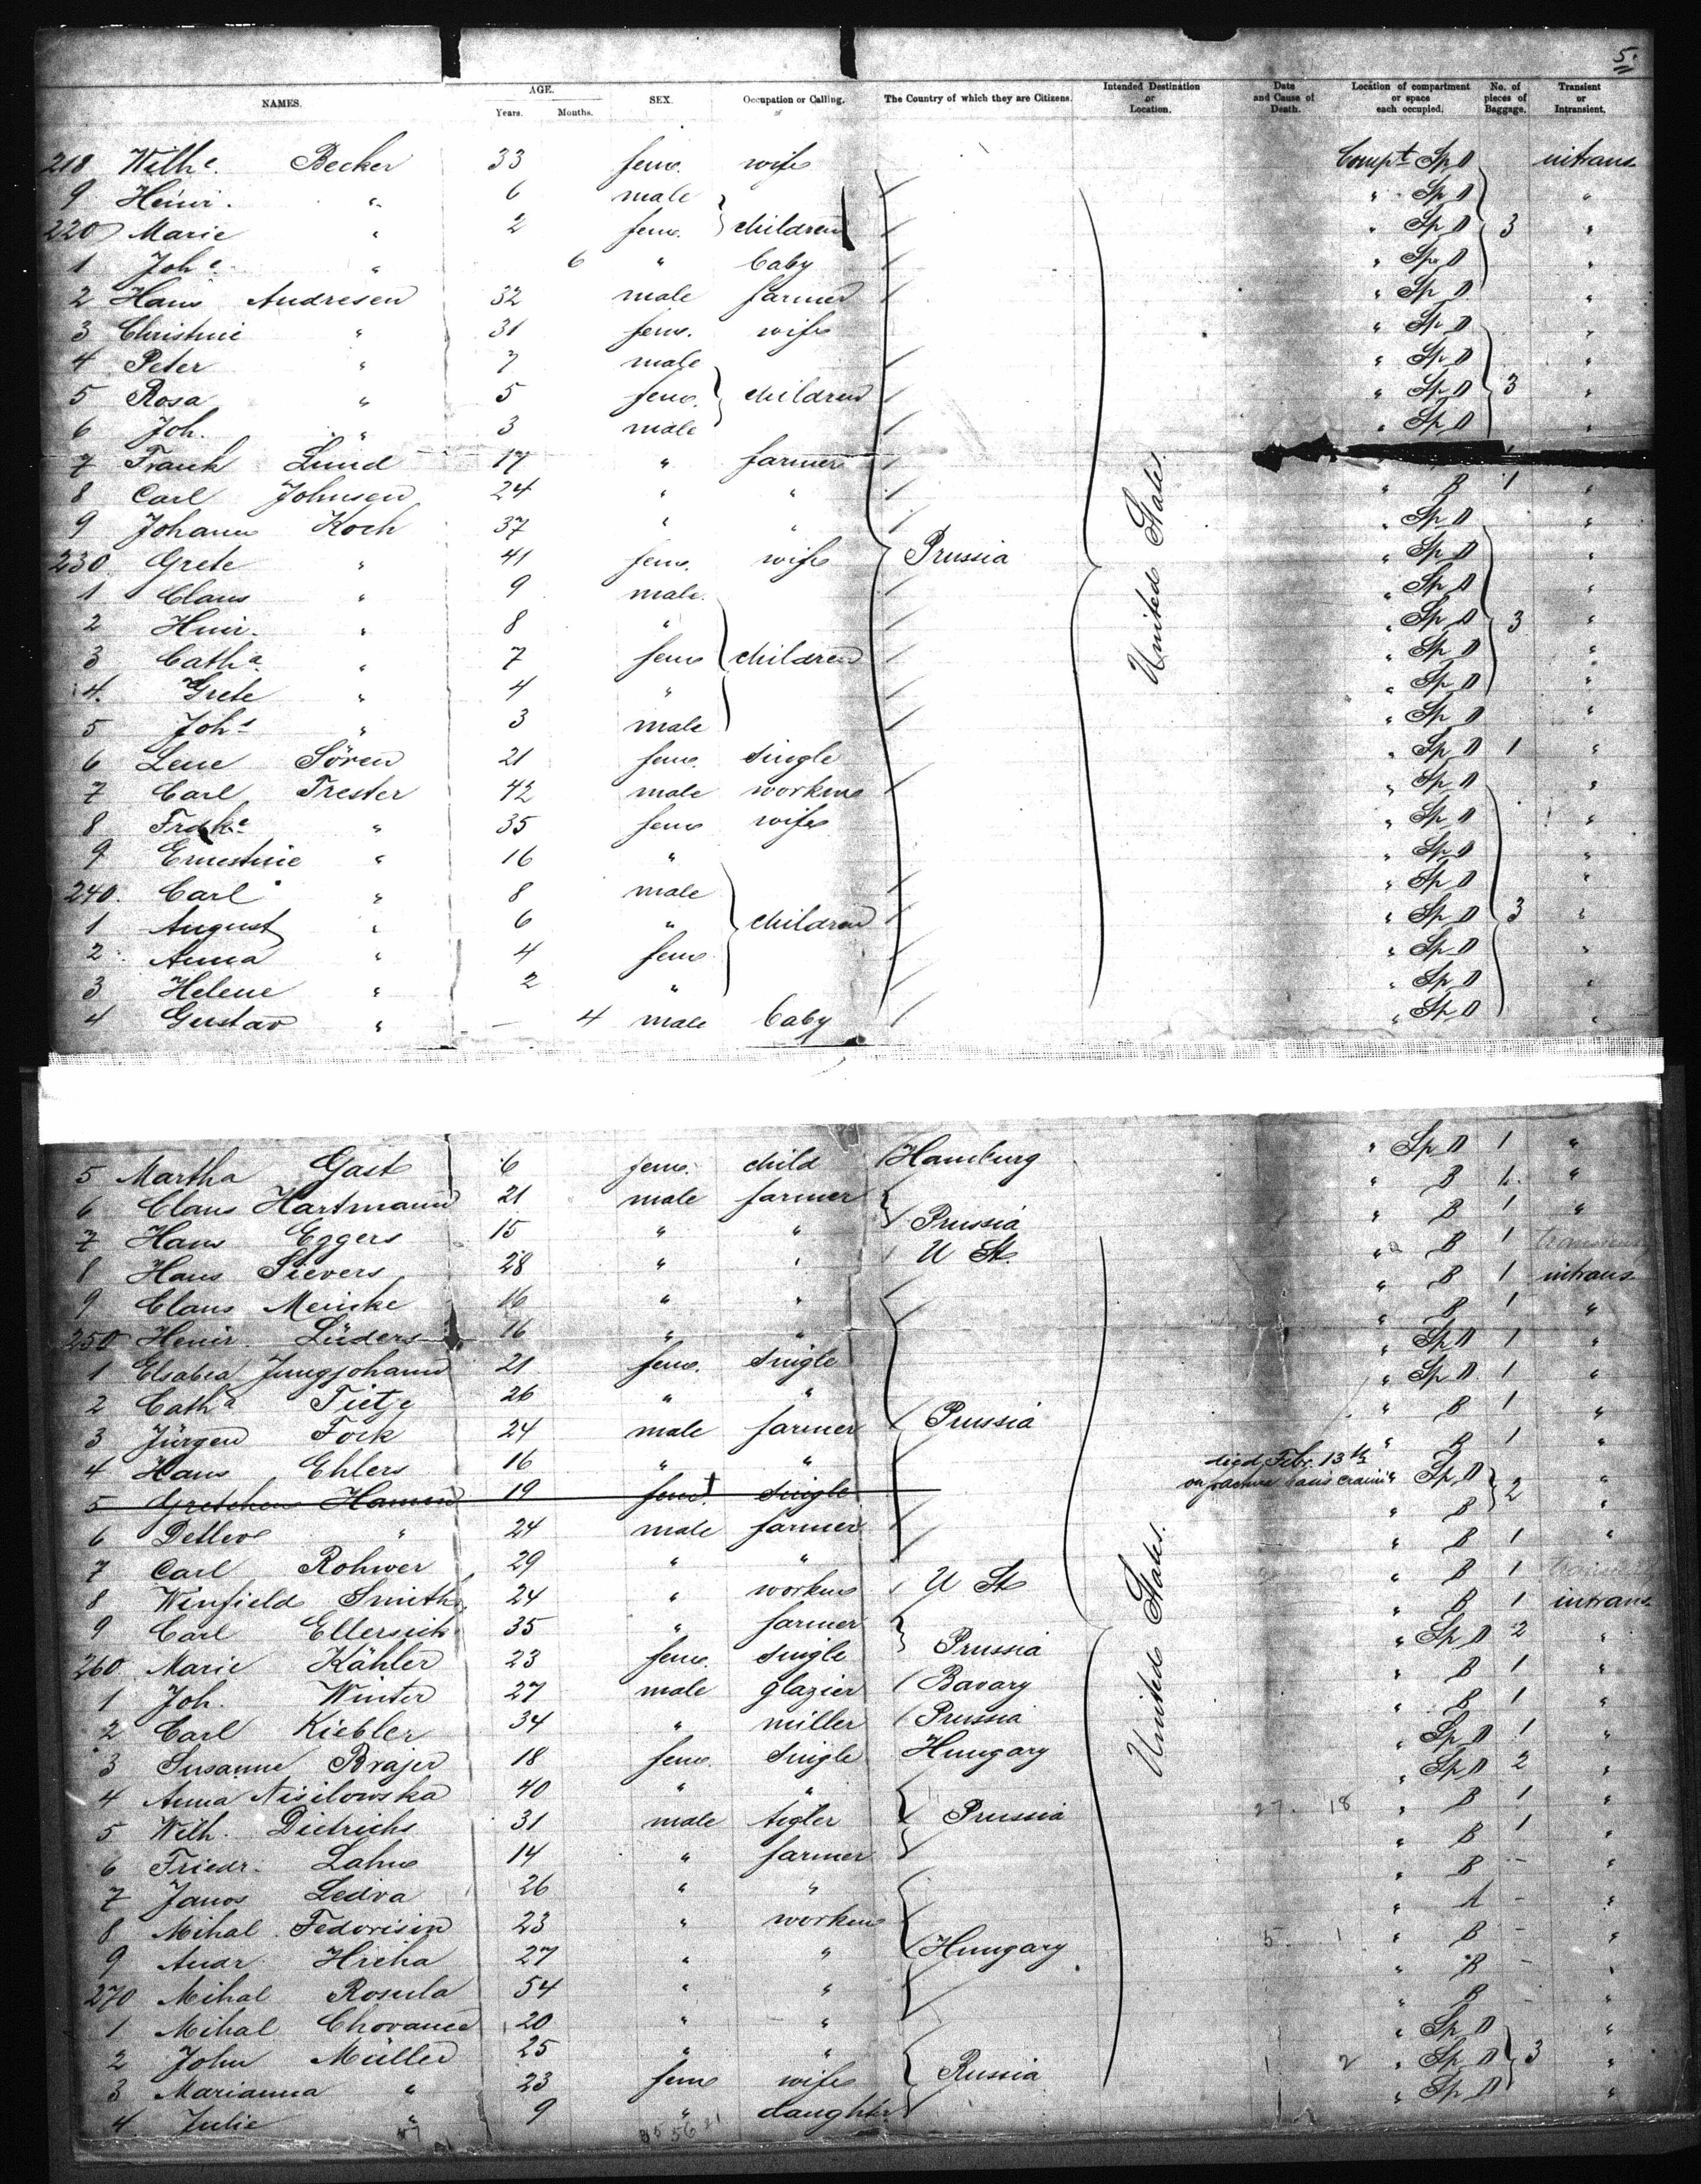 5.
NAMES. AGE. Years. Months. SEX. Occupation or Calling. The Country of which they are Citizens. Intended Destination or Location. Date and Cause of Death. Location of compartment or space each occupied. No. of pieces of Baggage. Transient or Intransient.
218 Wilhe. Becker 33 fem. wife Compt Sp D intrans
9 Heinr. " 6 male " Sp D "
220 Marie " 2 fem. children " Sp D 3 "
1 Johe. " 6 " baby " Sp D "
2 Hans Andresen 32 male farmer " Sp D "
3 Christine " 31 fem. wife " Sp D "
4 Peter " 7 male " Sp D "
5 Rosa " 5 fem. children " Sp D 3 "
6 Joh. " 3 male " Sp D "
7 Frank Lund 17 " farmer
8 Carl Johnsen 24 " " " B 1 "
9 Johann Koch 37 " " " Sp D "
230 Grete " 41 fem. wife Prussia United States. " Sp D "
1 Claus " 9 male. " Sp D "
2 Hinr. " 8 " " Sp D 3 "
3 Catha " 7 fem children " Sp D "
4. Grete " 4 " " Sp D "
5 Johs " 3 male " Sp D "
6 Lene Sören 21 fem. single " Sp D 1 "
7 Carl Trester 42 male workm " Sp D "
8 Frdke " 35 fem wife " Sp D "
9 Ernestine " 16 " " Sp D "
240. Carl " 8 male " Sp D "
1 August " 6 " children " Sp D 3 "
2 Anna " 4 fem " Sp D "
3 Helene " 2 " " Sp D "
4 Gustav " — 4 male baby " Sp D "
5 Martha Gast 6 fem. child Hamburg " Sp D 1 "
6 Claus Hartmann 21 male farmer " B 1. "
7 Hans Eggers 15 " " Prussia " B 1 "
8 Hans Sievers 28 " " U St. " B 1
9 Claus Meinke 16 " " " B 1 intrans
250 Heinr. Lüders 16 " " " B 1 "
1 Elsabea Jungjohann 21 fem. single " Sp D 1 "
2 Catha Tietje 26 " " " Sp D. 1 "
3 Jürgen Fock 24 male farmer Prussia " B 1 "
4 Hans Ehlers 16 " " " B 1 "
5 Gretchen Hamann 19 fem. single died Febr. 13th " Sp D 2 "
6 Detlev " 24 male farmer " B "
7 Carl Rohwer 29 " " " B 1 "
8 Winfield Smith 24 " workm U St United States. " B 1
9 Carl Ellersick 35 " farmer " B 1 intrans
260 Marie Kähler 23 fem. single Prussia " Sp D 2 "
1 Joh. Winter 27 male glazier Bavary " B 1 "
2 Carl Kiebler 34 " miller Prussia " B 1 "
3 Susanne Brajer 18 fem. single Hungary " Sp D 1 "
4 Anna Nisilowska 40 " " " Sp D 2 "
5 Wilh. Dietrichs 31 male tigler Prussia 27. 18 " B 1 "
6 Friedr. Lahn 14 " farmer " B 1 "
7 Janos Ledva 26 " " " B - "
8 Mihal Fedorisin 23 " workm " A - "
9 Andr. Hricha 27 " " Hungary 5. 1 " B - "
270 Mihal Rosula 54 " " " B - "
1 Mihal Chovanec 20 " " " B - "
2 John Müller 25 " " " Sp D "
3 Marianna " 23 fem wife Russia 1 2 " Sp D 3 "
4 Julie " 9 " daughter " Sp D "